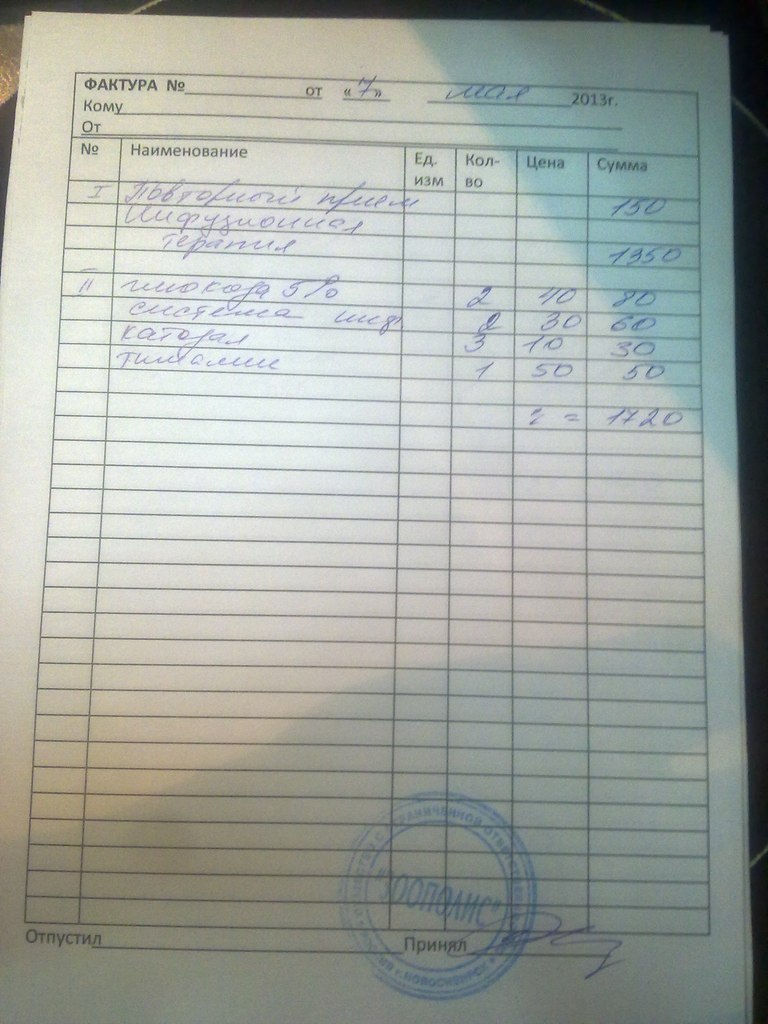 ФАКТУРА № от «7» мая 2013г.
Кому
От
№ Наименование Ед. изм Кол-во Цена Сумма
I Повторный прием 150
Инфузионная
терапия 1350
II глюкоза 5% 2 40 80
система инф 2 30 60
катозал 3 10 30
тиамин 1 50 50
= 1720
"ЗООПОЛИС"
г.НОВОСИБИРСК
Отпустил Принял